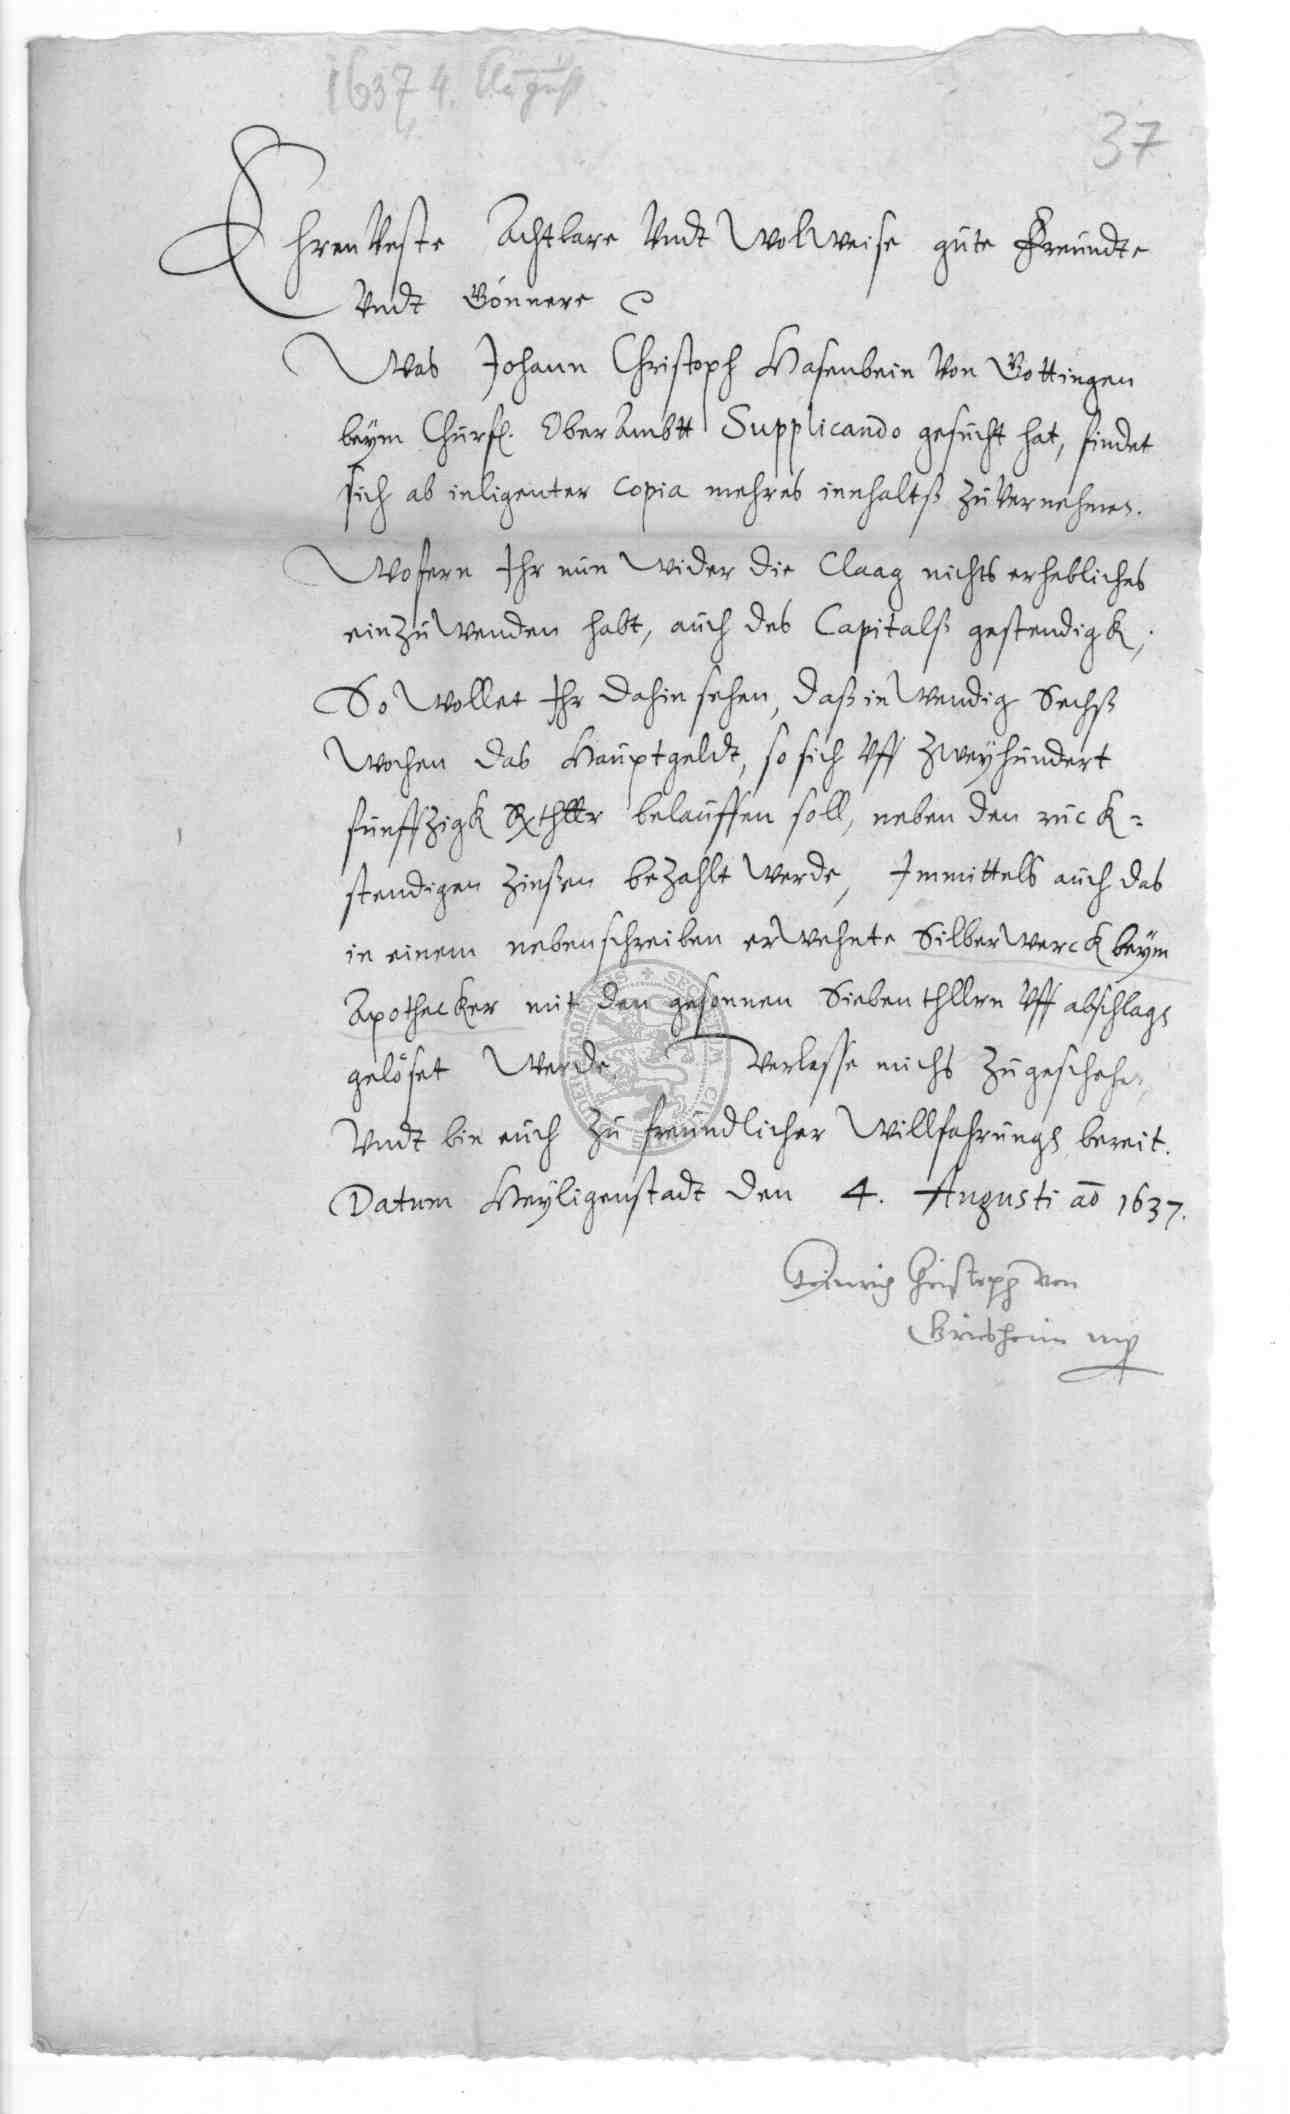 1637 4. August
37
EhrenVeste Achtbare Vndt WolWeise gute Freundte
Vndt Gönnere
Was Johann Christoph Hasenbein Von Gottingen
beÿm Churfl. OberAmbtt Supplicando gesucht hat, findet
sich ab inligenter Copia mehres innhaltß zuVernehmen.
Wofern Ihr nun Wider die Claag nichts erhebliches
einzuWenden habt, auch des Capitalß gestendigk,
So Wollet Ihr dahin sehen, daß inWendig Sechß
Wochen das Hauptgeldt, so sich Vff Zweÿhundert
funffzigk Rthllr belauffen soll, neben den ruck=
stendigen Zinßen bezahlt Werde, Immittels auch das
in einem nebenschreiben erWehnte SilberWerck beÿm
Apothecker mit den gesonnen Sieben thllrn Vff abschlag
gelöset Werde Verlesse michs zugeschehen,
Vndt bin euch zu freundlicher Willfahrung bereit.
Datum Heÿligenstadt den 4. Augusti ao 1637.
Heinrich Christoph von
Griesheim mp
SECRETUM CIVI